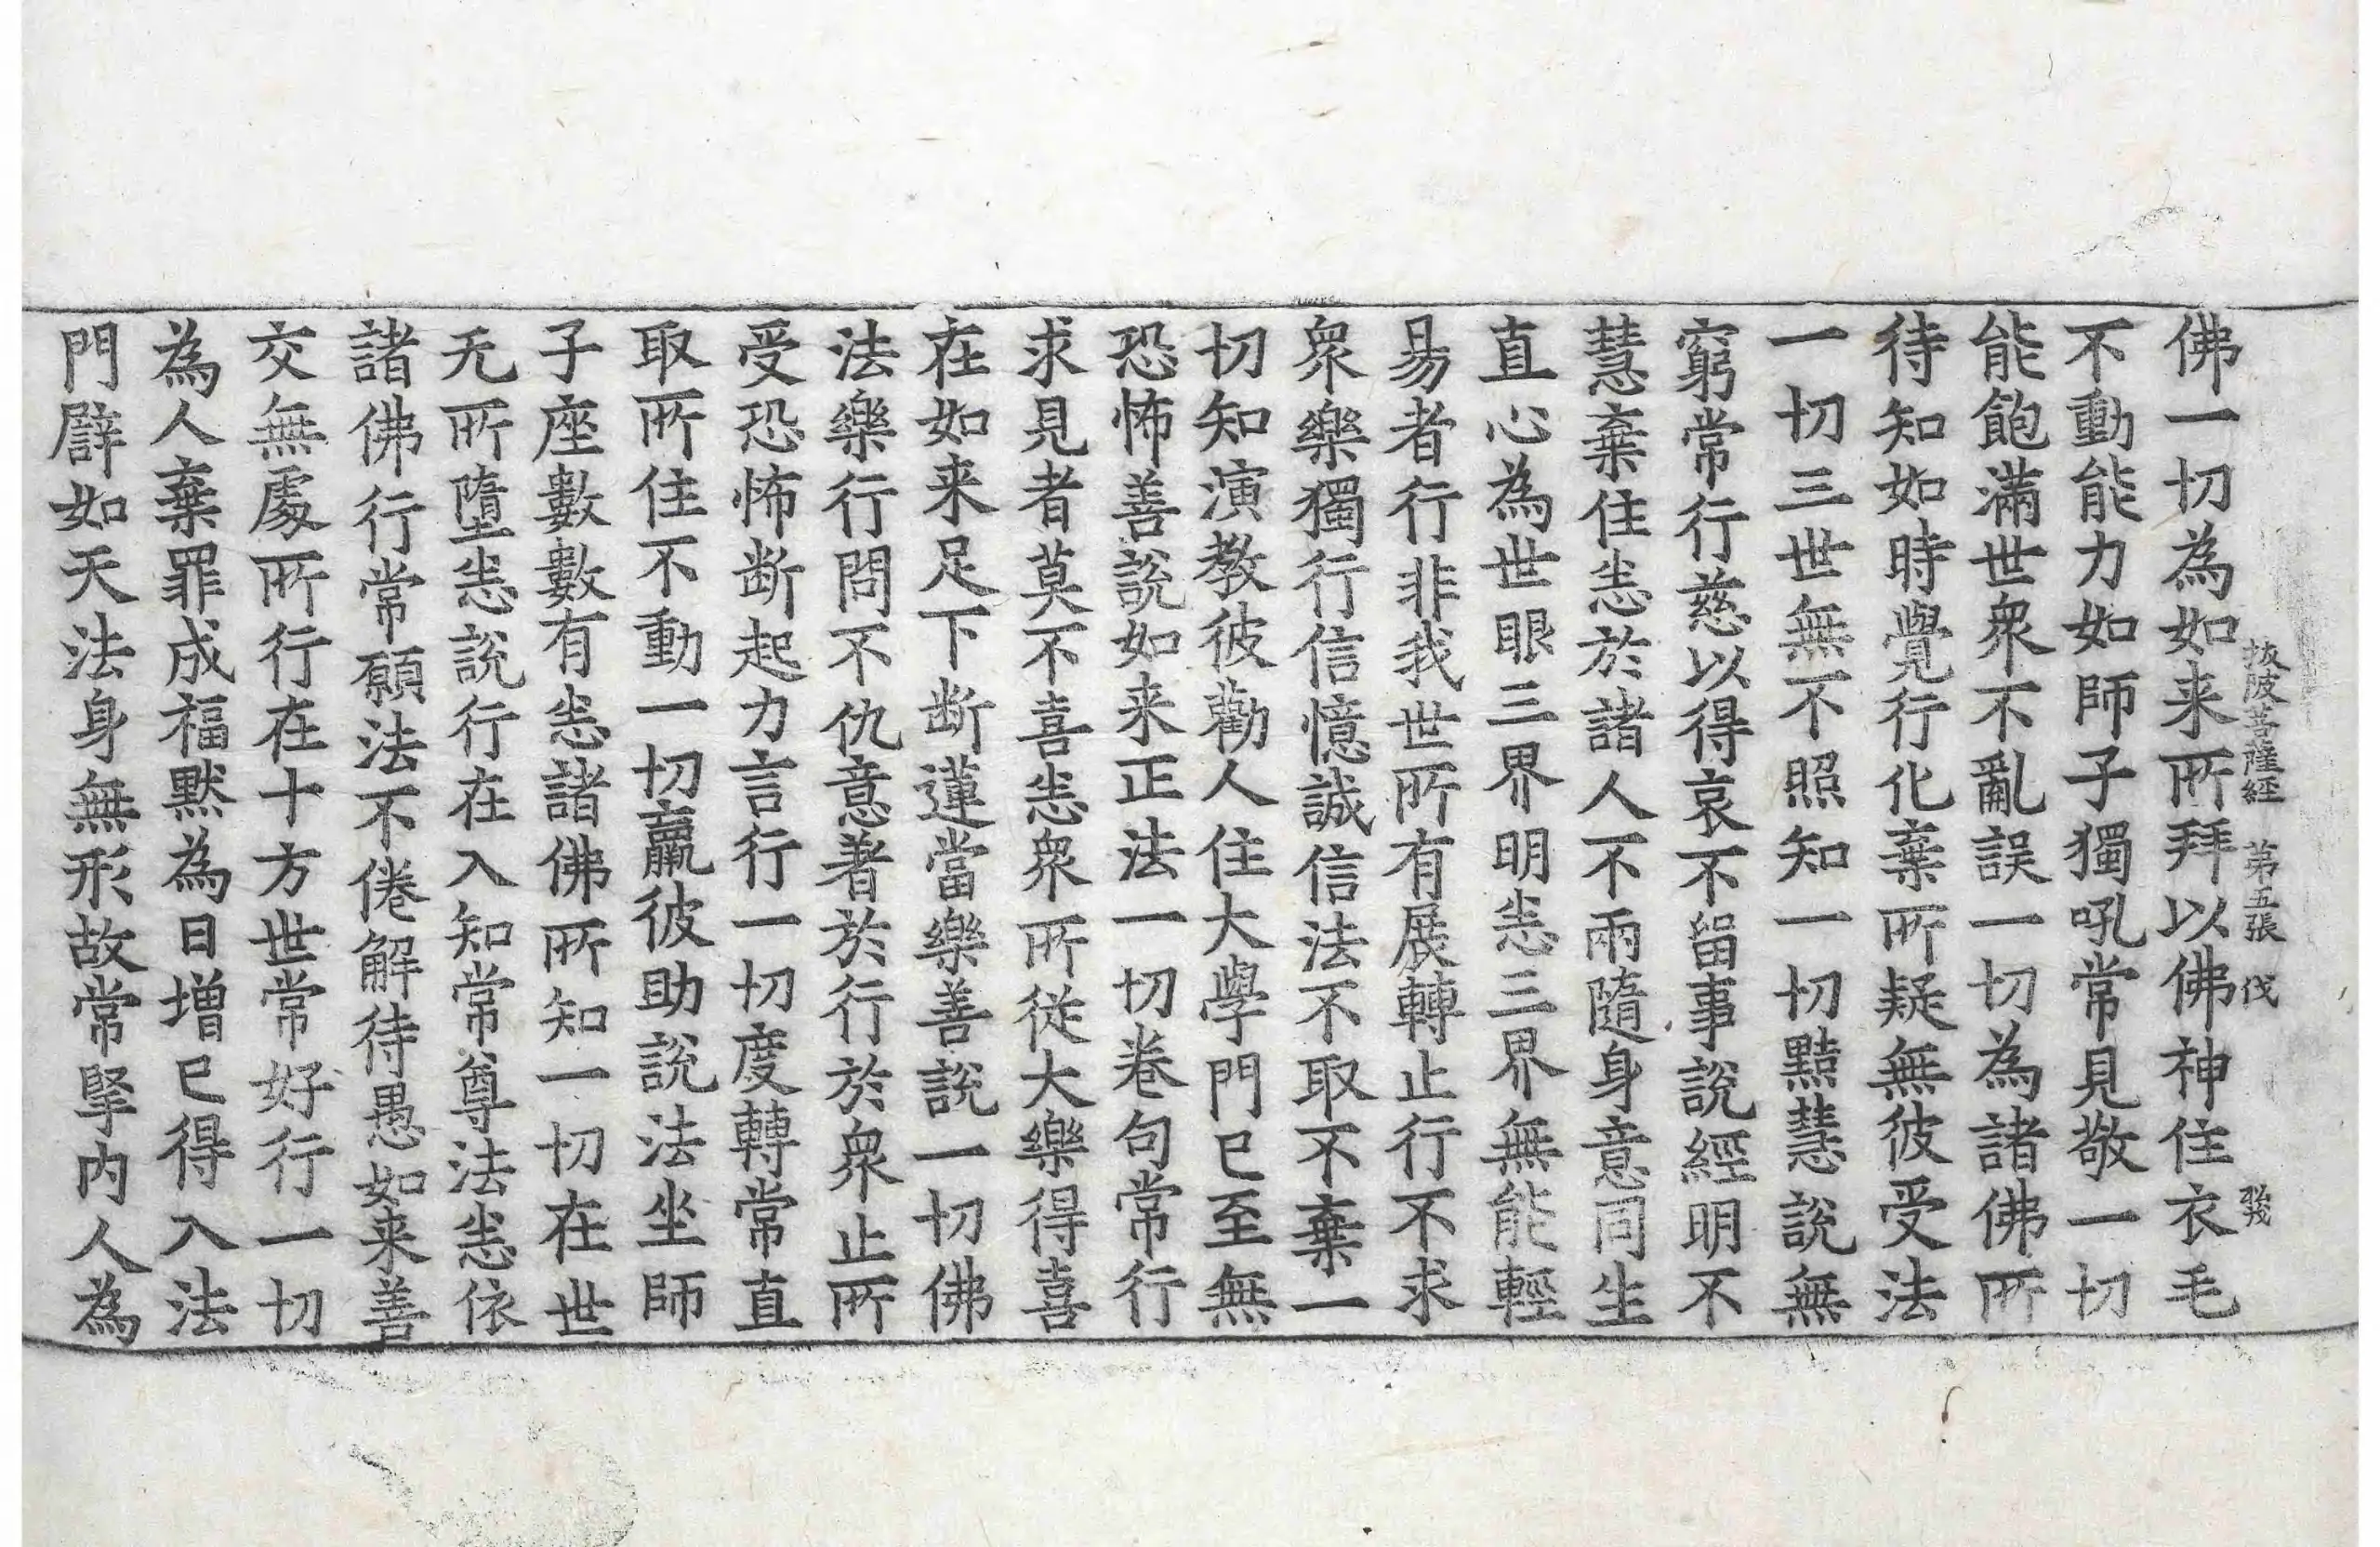 拔陂菩薩経　第五張　伐
佛一切為如来所拜以佛神住衣毛
不動能力如師子獨吼常見敬一切
能飽滿世衆不亂誤一切為諸佛所
待知如時覺行化棄所疑無彼受法
一切三世無不照知一切黠慧說無
窮常行慈以得哀不留事說經明不
慧棄住恙於諸人不兩隨身意同生
直心為世眼三界明恙三界無能輕
易者行非我世所有展轉止行不求
衆樂獨行信憶誠信法不取不棄一
切知演教彼勸人住大學門已至無
恐怖善說如来正法一切卷句常行
求見者莫不喜恙衆所從大樂得喜
在如来足下断蓮當樂善說一切佛
法樂行問不仇意著於行於衆止所
受恐怖断起力言行一切度轉常直
取所住不動一切羸彼助說法坐師
子座數數有恙諸佛所知一切在世
无所墮恙說行在入知常尊法恙依
諸佛行常願法不倦解待愚如来善
交無處所行在十方世常好行一切
為人棄罪成福默為日增已得入法
門辟如天法身無形故常堅內人為